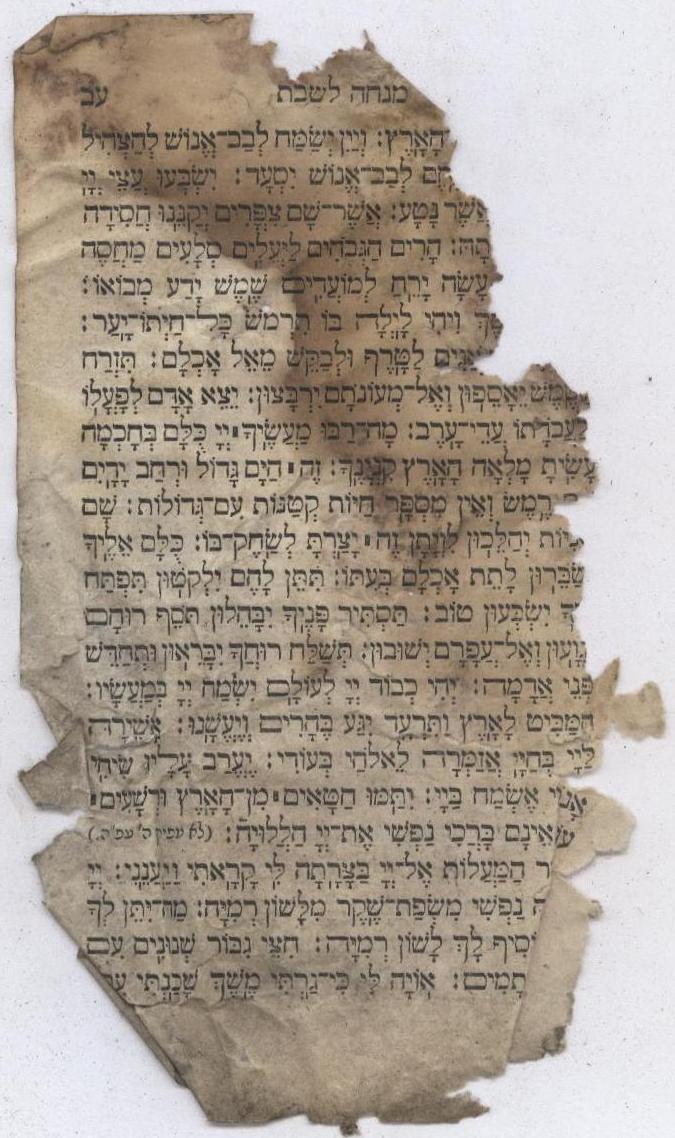 מנחה לשבת עב
הָאָרֶץ: וְיַיִן יְשַׂמַּח לְבַב־אֱנוֹשׁ לְהַצְהִיל
לְבַב־אֱנוֹשׁ יִסְעָד: יִשְׂבְּעוּ עֲצֵי יְיָ
אֲשֶׁר נָטָע: אֲשֶׁר־שָׁם צִפֳּרִים יְקַנֵּנוּ חֲסִידָה
הָרִים הַגְּבֹהִים לַיְּעֵלִים סְלָעִים מַחְסֶה
עָשָׂה יָרֵחַ לְמוֹעֲדִים שֶׁמֶשׁ יָדַע מְבוֹאוֹ:
וִיהִי לָיְלָה בּוֹ תִרְמֹשׂ כָּל־חַיְתוֹ־יָעַר:
לַטָּרֶף וּלְבַקֵּשׁ מֵאֵל אָכְלָם: תִּזְרַח
יֵאָסֵפוּן וְאֶל־מְעוֹנֹתָם יִרְבָּצוּן: יֵצֵא אָדָם לְפָעֳלוֹ
וְלַעֲבֹדָתוֹ עֲדֵי־עָרֶב: מָה־רַבּוּ מַעֲשֶׂיךָ יְיָ כֻּלָּם בְּחָכְמָה
עָשִׂיתָ מָלְאָה הָאָרֶץ קִנְיָנֶךָ: זֶה הַיָּם גָּדוֹל וּרְחַב יָדָיִם
רֶמֶשׂ וְאֵין מִסְפָּר חַיּוֹת קְטַנּוֹת עִם־גְּדוֹלוֹת: שָׁם
יְהַלֵּכוּן לִוְיָתָן זֶה יָצַרְתָּ לְשַׂחֶק־בּוֹ: כֻּלָּם אֵלֶיךָ
יְשַׂבֵּרוּן לָתֵת אָכְלָם בְּעִתּוֹ: תִּתֵּן לָהֶם יִלְקֹטוּן תִּפְתַּח
יִשְׂבְּעוּן טוֹב: תַּסְתִּיר פָּנֶיךָ יִבָּהֵלוּן תֹּסֵף רוּחָם
יִגְוָעוּן וְאֶל־עֲפָרָם יְשׁוּבוּן: תְּשַׁלַּח רוּחֲךָ יִבָּרֵאוּן וּתְחַדֵּשׁ
פְּנֵי אֲדָמָה: יְהִי כְבוֹד יְיָ לְעוֹלָם יִשְׂמַח יְיָ בְּמַעֲשָׂיו:
הַמַּבִּיט לָאָרֶץ וַתִּרְעָד יִגַּע בֶּהָרִים וְיֶעֱשָׁנוּ: אָשִׁירָה
לַיְיָ בְּחַיָּי אֲזַמְּרָה לֵאלֹהַי בְּעוֹדִי: יֶעֱרַב עָלָיו שִׂיחִי
אָנֹכִי אֶשְׂמַח בַּיְיָ: יִתַּמּוּ חַטָּאִים מִן־הָאָרֶץ וּרְשָׁעִים
אֵינָם בָּרְכִי נַפְשִׁי אֶת־יְיָ הַלְלוּיָהּ:
הַמַּעֲלוֹת אֶל־יְיָ בַּצָּרָתָה לִּי קָרָאתִי וַיַּעֲנֵנִי: יְיָ
נַפְשִׁי מִשְּׂפַת־שֶׁקֶר מִלָּשׁוֹן רְמִיָּה: מַה־יִּתֵּן לְךָ
יֹּסִיף לָךְ לָשׁוֹן רְמִיָּה: חִצֵּי גִבּוֹר שְׁנוּנִים עִם
רְתָמִים: אוֹיָה לִי כִּי־גַרְתִּי מֶשֶׁךְ שָׁכַנְתִּי עִם